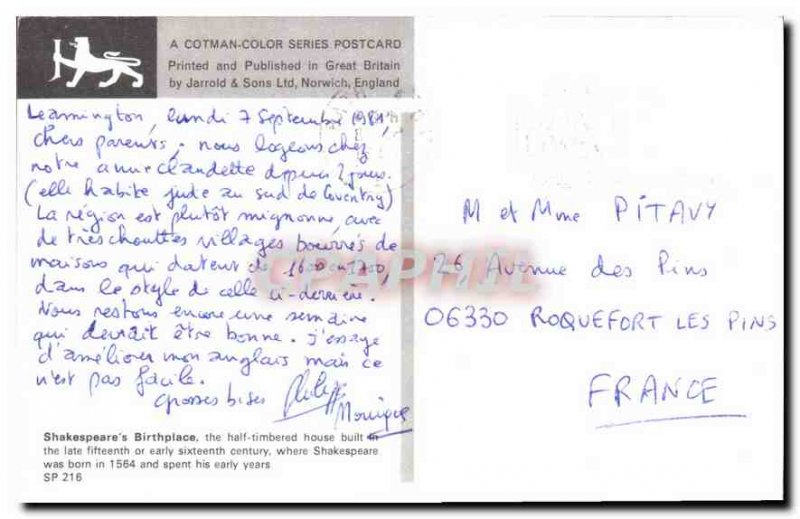 A COTMAN-COLOR SERIES POSTCARD
Printed and Published in Great Britain
by Jarrold & Sons Ltd, Norwich, England
Leamington, lundi 7 Septembre 1981,
chers parents. nous logeons chez
notre amie Claudette depuis 2 jours.
(elle habite juste au sud de Coventry)
La région est plutôt mignonne, avec
de très chouettes villages bourrés de
maisons qui datent de 1600 ou 1700,
dans le style de celle ci-derrière.
Nous restons encore une semaine
qui devrait être bonne. j'essaye
d'améliorer mon anglais mais ce
n'est pas facile.
Grosses bises
Monique
Shakespeare's Birthplace, the half-timbered house built in
the late fifteenth or early sixteenth century, where Shakespeare
was born in 1564 and spent his early years
SP 216
M et Mme PITAVY
26 Avenue des Pins
06330 ROQUEFORT LES PINS
FRANCE
CPAPHIL